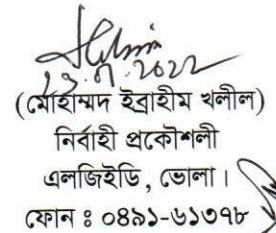 (মোহাম্মদ ইব্রাহীম খলীল)
নির্বাহী প্রকৌশলী
এলজিইডি, ভোলা।
ফোন ঃ ০৪৯১-৬১৩৭৮